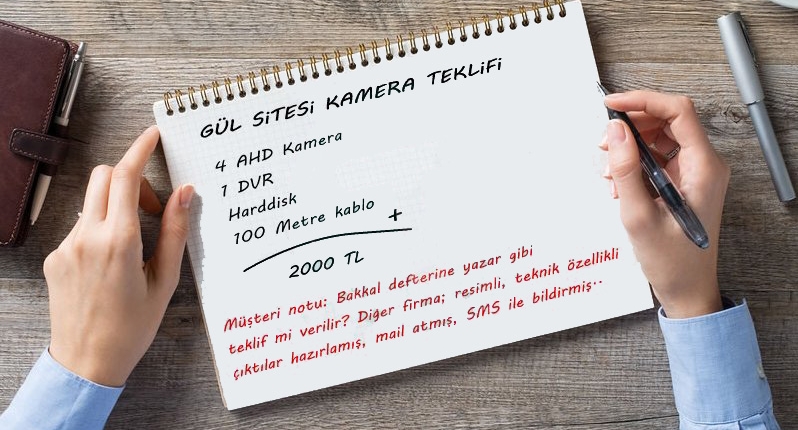 GÜL SiTESi KAMERA TEKLiFi
4 AHD Kamera
1 DVR
Harddisk
100 Metre kablo +
2000 TL
Müşteri notu: Bakkal defterine yazar gibi
teklif mi verilir? Diğer firma; resimli, teknik özellikli
çıktılar hazırlamış, mail atmış, SMS ile bildirmiş..